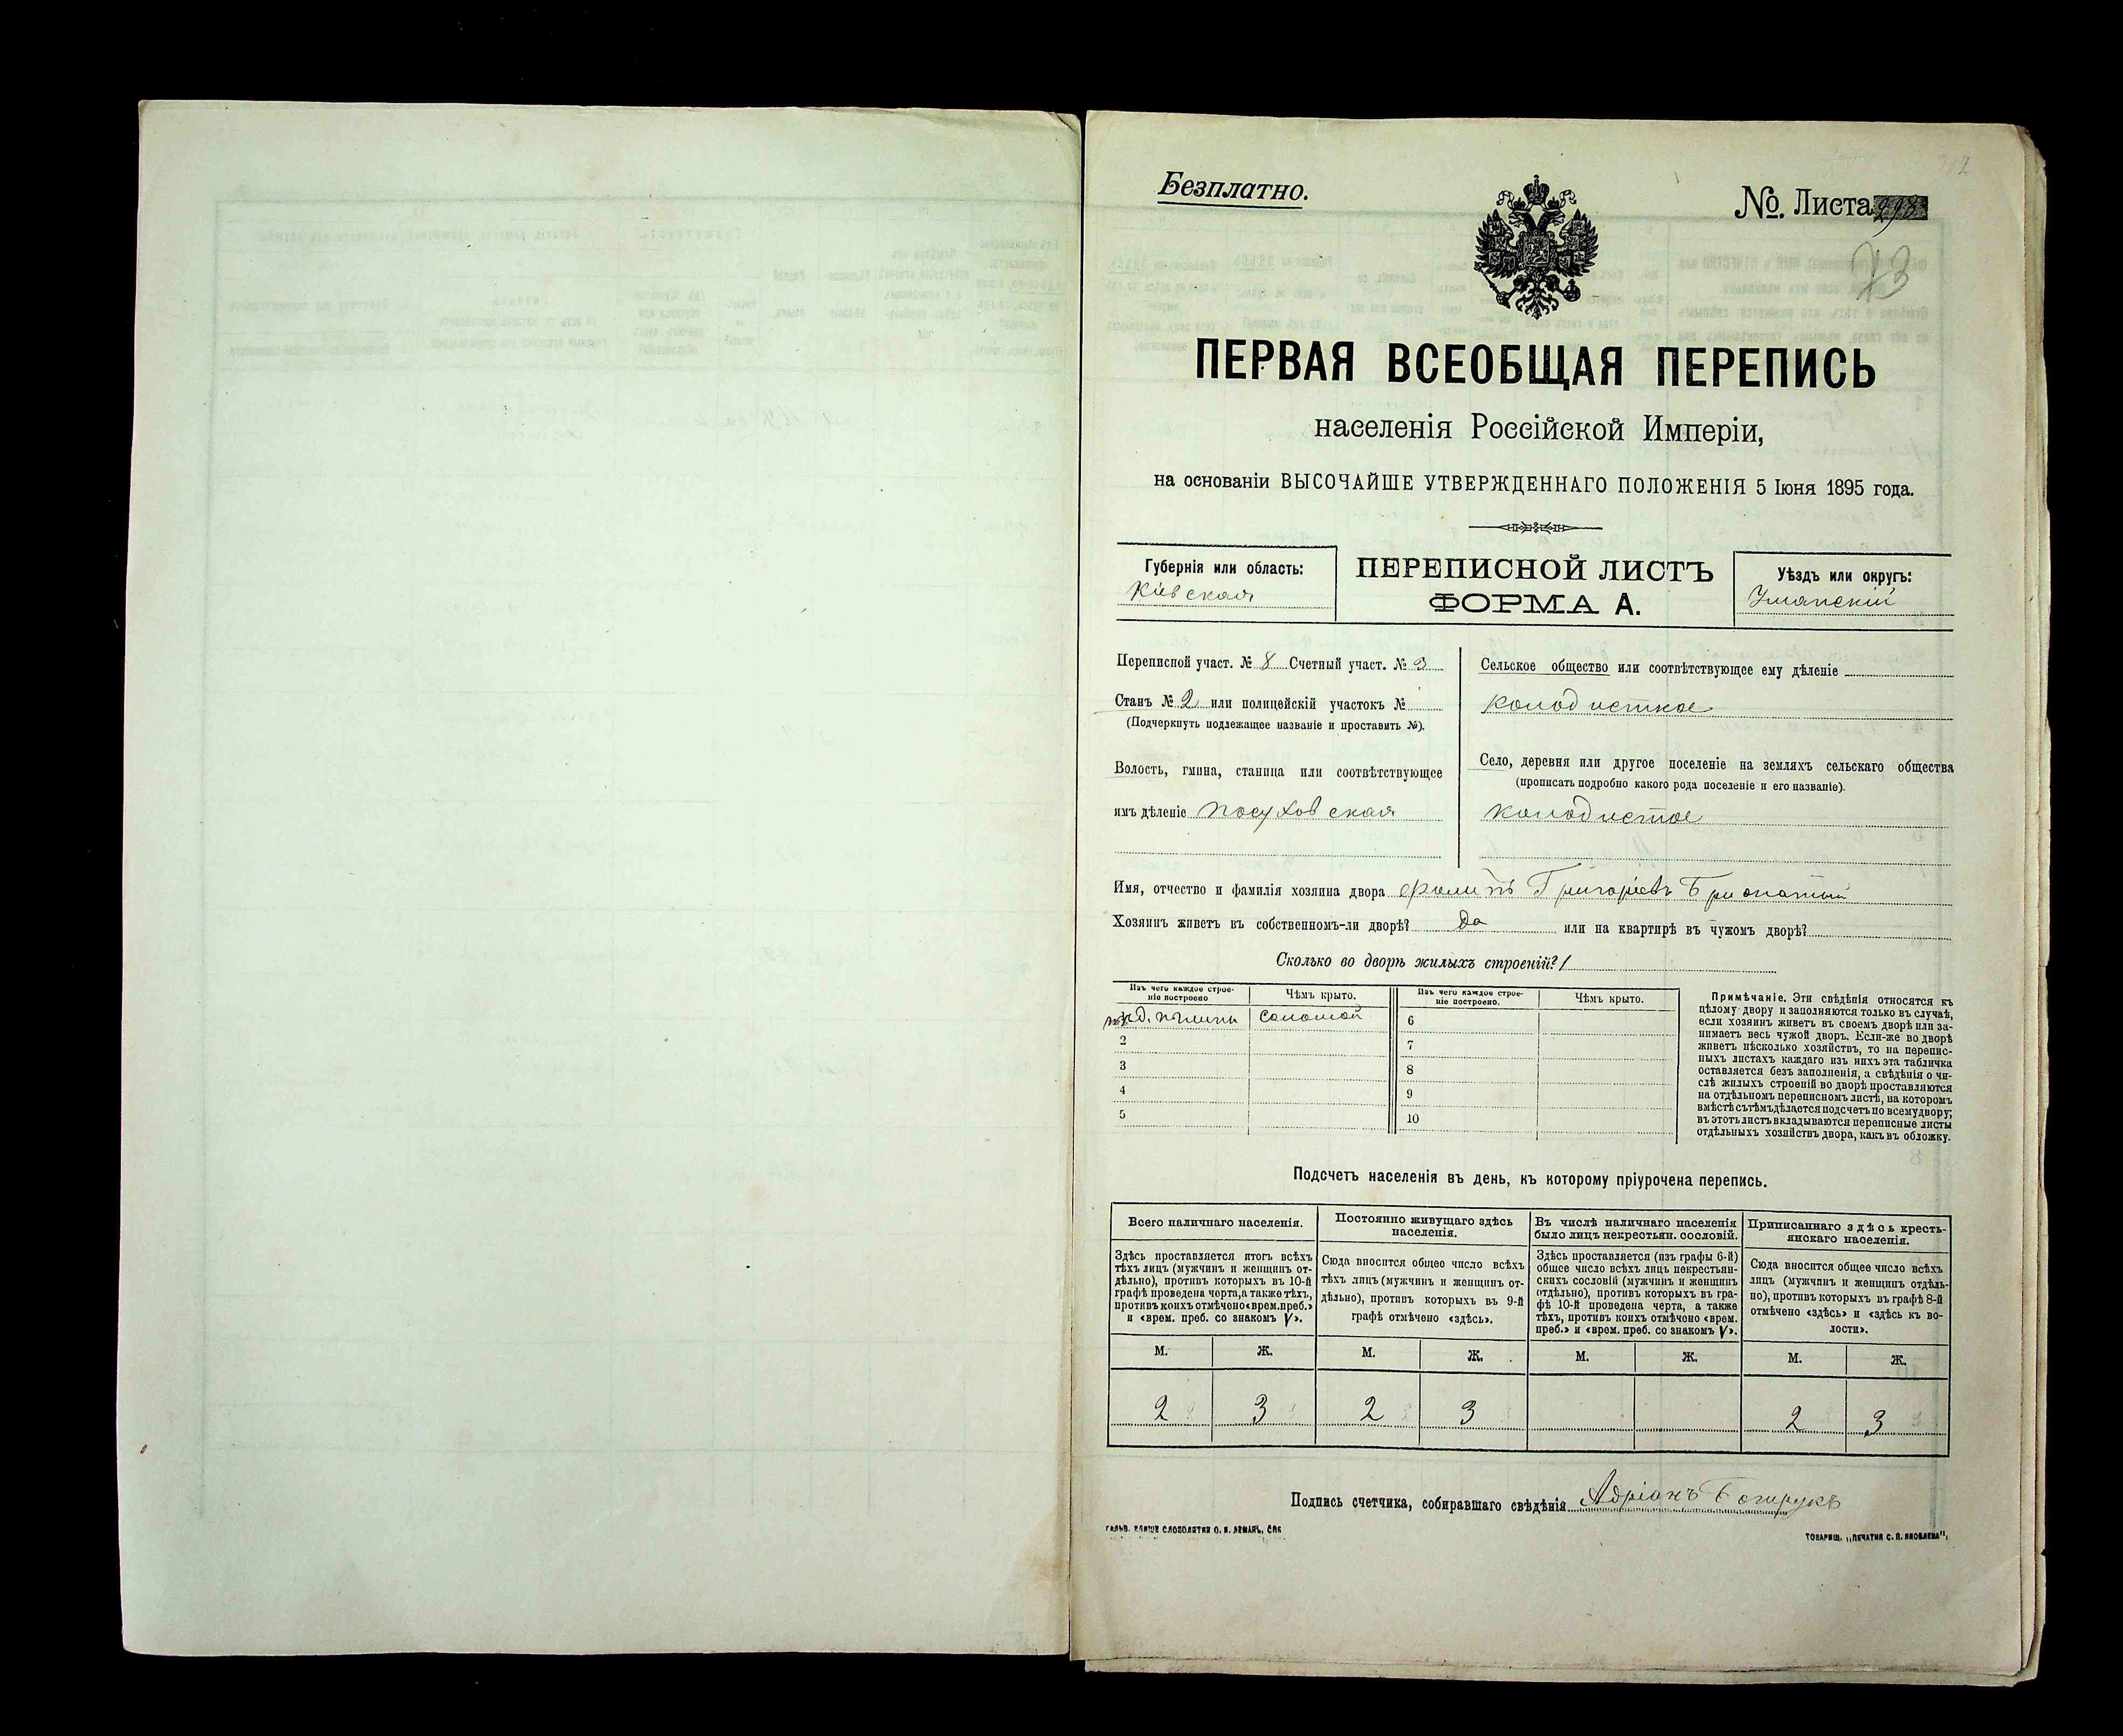 Безплатно.
№. Листа 298
73
ПЕРВАЯ ВСЕОБЩАЯ ПЕРЕПИСЬ
населенія Россійской Имперіи,
на основаніи ВЫСОЧАЙШЕ УТВЕРЖДЕННАГО ПОЛОЖЕНІЯ 5 Іюня 1895 года.
Губернія или область:
Кіевская
ПЕРЕПИСНОЙ ЛИСТЪ
ФОРМА А.
Уѣздъ или округъ:
Уманскій
Переписной участ. № 8 Счетный участ. № 3
Станъ № 2 или полицейскій участокъ №
(Подчеркнуть подлежащее названіе и проставить №).
Волость, гмина, станица или соотвѣтствующее
имъ дѣленіе Посуховская
Сельское общество или соотвѣтствующее ему дѣленіе
колодисткое
Село, деревня или другое поселеніе на земляхъ сельскаго общества
(прописать подробно какого рода поселеніе и его названіе).
колодистое
Имя, отчество и фамилія хозяина двора Григоріевъ
Хозяинъ живетъ въ собственномъ-ли дворѣ? да или на квартирѣ въ чужомъ дворѣ?
Сколько во дворѣ жилыхъ строеній? 1
Изъ чего каждое строе-
ніе построено
Чѣмъ крыто.
Изъ чего каждое строе-
ніе построено.
Чѣмъ крыто.
соломой
6
2
7
3
8
4
9
5
10
Примѣчаніе. Эти свѣдѣнія относятся къ
цѣлому двору и заполняются только въ случаѣ,
если хозяинъ живетъ въ своемъ дворѣ или за-
нимаетъ весь чужой дворъ. Если-же во дворѣ
живетъ нѣсколько хозяйствъ, то на перепис-
ныхъ листахъ каждаго изъ нихъ эта табличка
оставляется безъ заполненія, а свѣдѣнія о чи-
слѣ жилыхъ строеній во дворѣ проставляются
на отдѣльномъ переписномъ листѣ, на которомъ
вмѣстѣ съ тѣмъ дѣлается подсчетъ по всему двору;
въ этотъ листъ вкладываются переписные листы
отдѣльныхъ хозяйствъ двора, какъ въ обложку.
Подсчетъ населенія въ день, къ которому пріурочена перепись.
Всего наличнаго населенія.
Здѣсь проставляется итогъ всѣхъ
тѣхъ лицъ (мужчинъ и женщинъ от-
дѣльно), противъ которыхъ въ 10-й
графѣ проведена черта, а также тѣхъ,
противъ коихъ отмѣчено «врем. преб.»
и «врем. преб. со знакомъ V».
Постоянно живущаго здѣсь
населенія.
Сюда вносится общее число всѣхъ
тѣхъ лицъ (мужчинъ и женщинъ от-
дѣльно), противъ которыхъ въ 9-й
графѣ отмѣчено «здѣсь».
Въ числѣ наличнаго населенія
было лицъ некрестьян. сословій.
Здѣсь проставляется (изъ графы 6-й)
общее число всѣхъ лицъ некрестьян-
скихъ сословій (мужчинъ и женщинъ
отдѣльно), противъ которыхъ въ гра-
фѣ 10-й проведена черта, а также
тѣхъ, противъ коихъ отмѣчено «врем.
преб.» и «врем. преб. со знакомъ V».
Приписаннаго здѣсь кресть-
янскаго населенія.
Сюда вносится общее число всѣхъ
лицъ (мужчинъ и женщинъ отдѣль-
но), противъ которыхъ въ графѣ 8-й
отмѣчено «здѣсь» и «здѣсь къ во-
лости».
М. Ж. М. Ж. М. Ж. М. Ж.
2 3 2 3 2 3
Подпись счетчика, собиравшаго свѣдѣнія Адріанъ
ГАЛЬВ. КЛИШЕ СЛОВОЛИТНИ О. И. ЛЕМАНЪ, СПБ
ТОВАРИЩ. „ПЕЧАТНЯ С. П. ЯКОВЛЕВА",